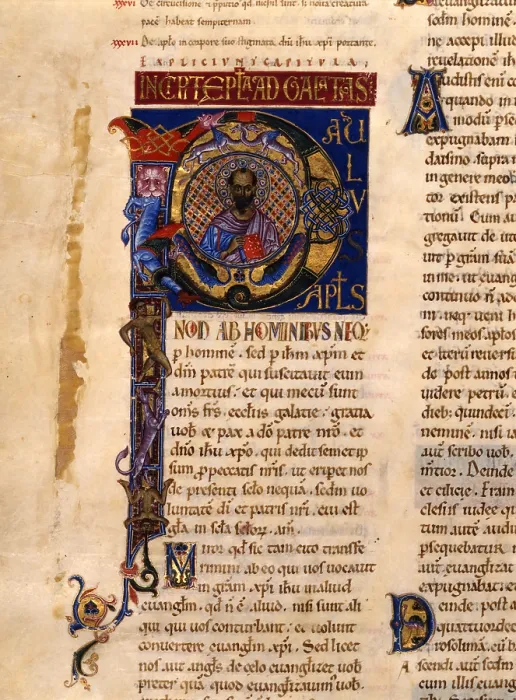 xxxvi De circūcisione & p̄putio qd nichil sunt. si noua creatura
pacē habeat sempiternam.
xxxvii De aplo in corpore suo stigmata dn̄i ihu xp̄i portante.
EXPLICIUNT CAPITULA;
INCIPIT EPLA AD GALATAS
PAULUS
APLS
NON AB HOMINIBUS NEQ;
p hominē. sed p ihm xpm et
dm̄ patrē qui suscitauit eum
amortuis. et qui mecū sunt
om̄s frs. eccliis galatie. gratia
uob & pax a dō patre nrō. et
dn̄o ihu xpo. qui dedit semetip
sum p peccatis nris. ut eripet nos
de presenti sclo nequā. scdm uo
luntatē di et patris nri. cui est
gla in scla sclor. am̄.
Miror qd sic tam cito transfe
rimini ab eo qui uos uocauit
in grām xpi ihu in aliud
euanglm. qd n̄ ē aliud. nisi sunt ali
qui qui uos conturbant. et uolunt
conuertere euanglm xpi. Sed licet
nos aut angls de celo euanglizet uob.
preter quā quod euanglizauim uob.
sodm hominē.
ne accepi illud
reuelationē ih
Audistis eni co
quando in
modū pse
expugnabam
daismo supra
in genere meo
tor existens p
tionū. Cum au
gregauit de ute
uit p grām suā
in me. ut euang
continuo n̄ ad
m. neq; ueni h
sores meos aplos
et iterū reuersu
de post annos t
uidere petrū. e
dieb; quindeci
neminē. nisi ia
aut scribo uob.
mtior. Deinde
et cilicie. Eram
clesiis iudee qu
tum autē audi
psequebatur n
aut euanglizat
expugnabat. et
Deinde post a
quattuordec
rosolima. cū b
Ascendi aut scdm
cum illis euang